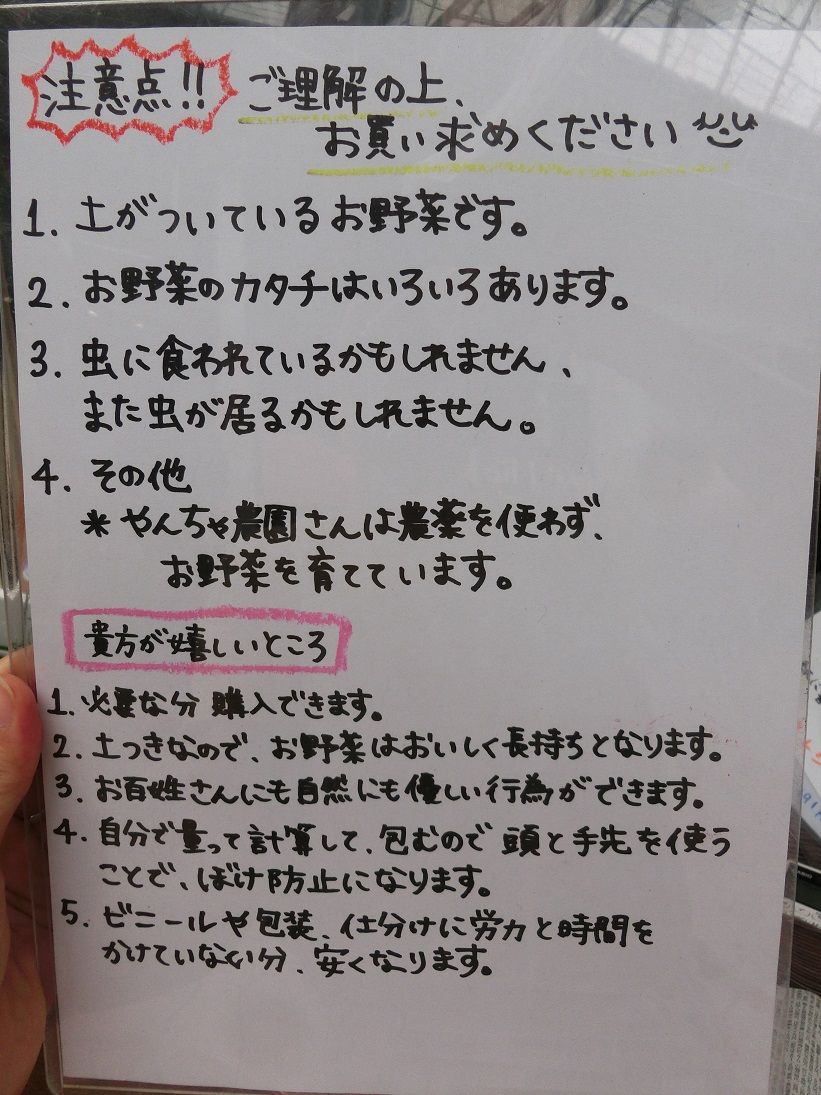 注意点!! ご理解の上、
お買い求めください
1. 土がついているお野菜です。
2. お野菜のカタチはいろいろあります。
3. 虫に食われているかもしれません、
また虫が居るかもしれません。
4. その他
* やんちゃ農園さんは農薬を使わず、
お野菜を育てています。
貴方が嬉しいところ
1. 必要な分 購入できます。
2. 土つきなので、お野菜はおいしく長持ちとなります。
3. お百姓さんにも自然にも優しい行為ができます。
4. 自分で量って計算して、包むので 頭と手先を使う
ことで、ぼけ防止になります。
5. ビニールや包装、仕分けに労力と時間を
かけていない分、安くなります。